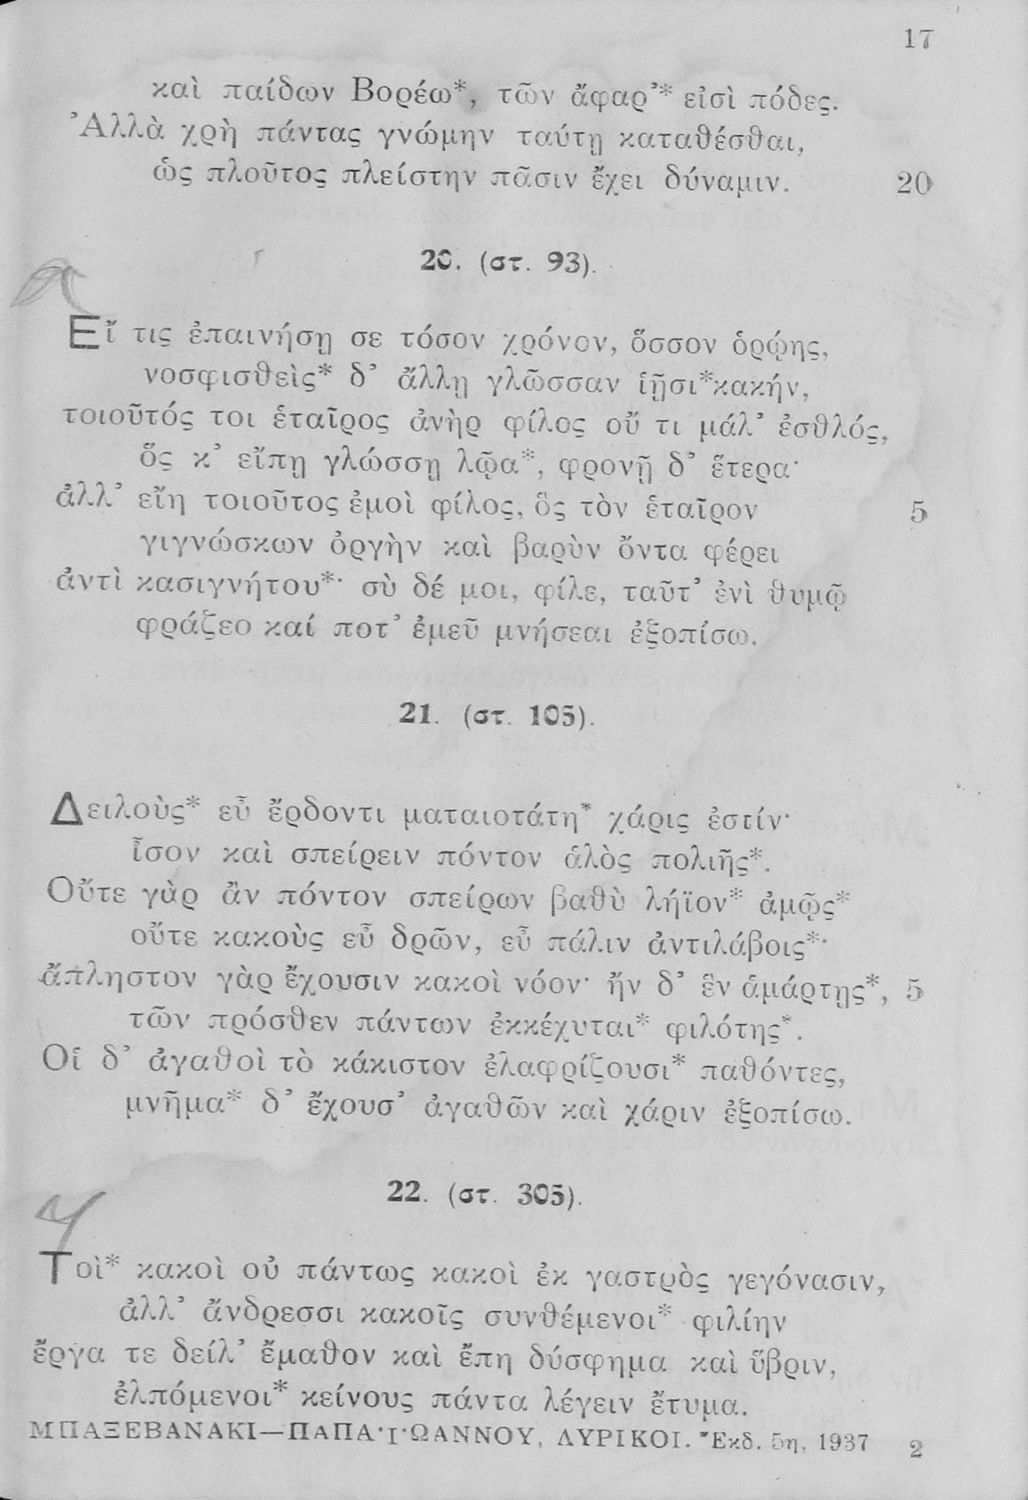 17
καὶ παίδων Βορέω*, τῶν ἄφαρ’* εἰσὶ πόδες.
Ἀλλὰ χρὴ πάντας γνώμην ταύτῃ καταθέσθαι,
ὡς πλοῦτος πλείστην πᾶσιν ἔχει δύναμιν. 20
20. (στ. 93).
Εἴ τις ἐπαινήσῃ σε τόσον χρόνον, ὅσσον ὁρῴης,
νοσφισθεὶς* δ’ ἄλλῃ γλῶσσαν ἱῇσι*κακήν,
τοιοῦτός τοι ἑταῖρος ἀνὴρ φίλος οὔ τι μάλ’ ἐσθλός,
ὅς κ’ εἴπῃ γλώσσῃ λῷα*, φρονῇ δ’ ἕτερα·
ἀλλ’ εἴη τοιοῦτος ἐμοὶ φίλος, ὃς τὸν ἑταῖρον 5
γιγνώσκων ὀργὴν καὶ βαρὺν ὄντα φέρει
ἀντὶ κασιγνήτου*· σὺ δέ μοι, φίλε, ταῦτ’ ἐνὶ θυμῷ
φράζεο καί ποτ’ ἐμεῦ μνήσεαι ἐξοπίσω.
21. (στ. 105).
Δειλοὺς* εὖ ἔρδοντι ματαιοτάτη* χάρις ἐστίν·
ἶσον καὶ σπείρειν πόντον ἁλὸς πολιῆς*.
Οὔτε γὰρ ἂν πόντον σπείρων βαθὺ λήϊον* ἀμῷς*
οὔτε κακοὺς εὖ δρῶν, εὖ πάλιν ἀντιλάβοις*·
ἄπληστον γὰρ ἔχουσιν κακοὶ νόον· ἢν δ’ ἓν ἁμάρτῃς*, 5
τῶν πρόσθεν πάντων ἐκκέχυται* φιλότης*.
Οἱ δ’ ἀγαθοὶ τὸ κάκιστον ἐλαφρίζουσι* παθόντες,
μνῆμα* δ’ ἔχουσ’ ἀγαθῶν καὶ χάριν ἐξοπίσω.
22. (στ. 305).
Τοὶ* κακοὶ οὐ πάντως κακοὶ ἐκ γαστρὸς γεγόνασιν,
ἀλλ’ ἄνδρεσσι κακοῖς συνθέμενοι* φιλίην
ἔργα τε δείλ’ ἔμαθον καὶ ἔπη δύσφημα καὶ ὕβριν,
ἐλπόμενοι* κείνους πάντα λέγειν ἔτυμα.
ΜΠΑΞΕΒΑΝΑΚΙ—ΠΑΠΑ·Ι·ΩΑΝΝΟΥ, ΛΥΡΙΚΟΙ. Ἔκδ. 5η, 1937 2